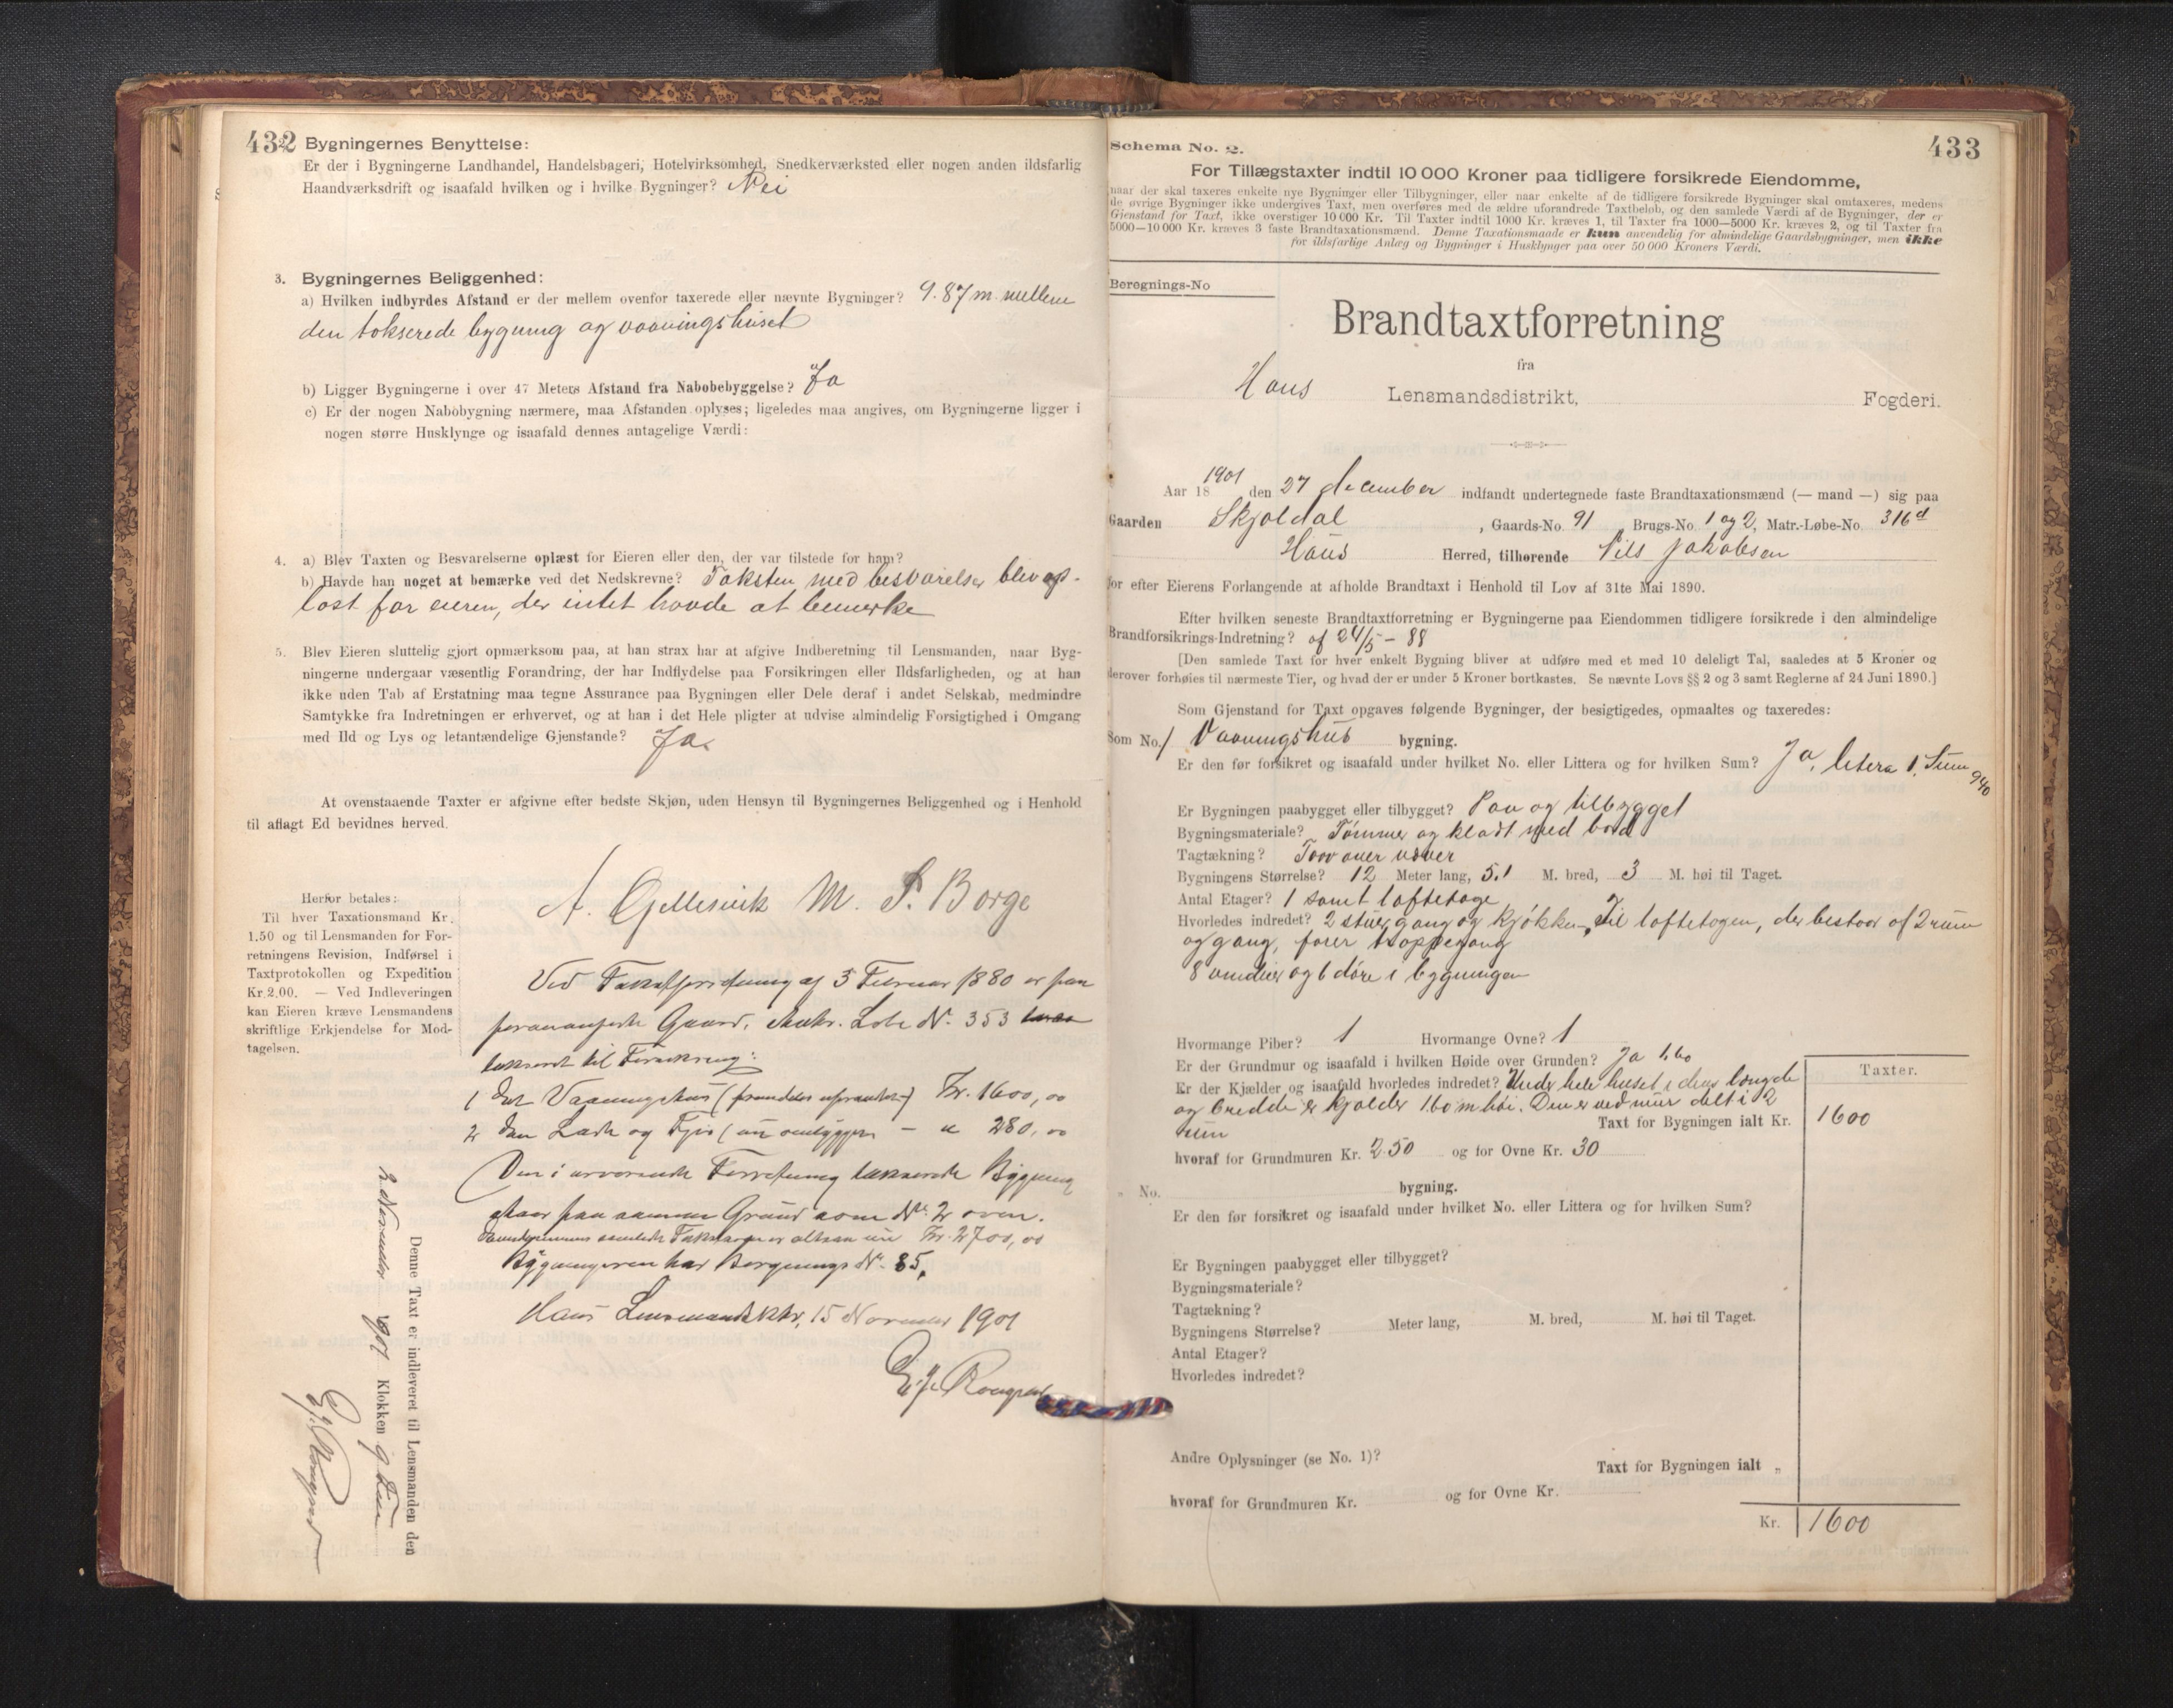 432
Bygningernes Benyttelse:
Er der i Bygningerne Landhandel, Handelsbageri, Hotelvirksomhed, Snedkerværksted eller nogen anden ildsfarlig
Haandværksdrift og isaafald hvilken og i hvilke Bygninger? Nei
3. Bygningernes Beliggenhed:
a) Hvilken indbyrdes Afstand er der mellem ovenfor taxerede eller nævnte Bygninger? 9.87 m. mellem
den takserede bygning og vaaningshuset
b) Ligger Bygningerne i over 47 Meters Afstand fra Nabobebyggelse? Ja
c) Er der nogen Nabobygning nærmere, maa Afstanden oplyses; ligeledes maa angives, om Bygningerne ligger i
nogen større Husklynge og isaafald dennes antagelige Værdi:
4. a) Blev Taxten og Besvarelserne oplæst for Eieren eller den, der var tilstede for ham?
b) Havde han noget at bemærke ved det Nedskrevne? Taksten med besvarelser blev op-
læst for eieren, der intet havde at bemerke
5. Blev Eieren sluttelig gjort opmærksom paa, at han strax har at afgive Indberetning til Lensmanden, naar Byg-
ningerne undergaar væsentlig Forandring, der har Indflydelse paa Forsikringen eller Ildsfarligheden, og at han
ikke uden Tab af Erstatning maa tegne Assurance paa Bygningen eller Dele deraf i andet Selskab, medmindre
Samtykke fra Indretningen er erhvervet, og at han i det Hele pligter at udvise almindelig Forsigtighed i Omgang
med Ild og Lys og letantændelige Gjenstande? Ja.
At ovenstaaende Taxter er afgivne efter bedste Skjøn, uden Hensyn til Bygningernes Beliggenhed og i Henhold
til aflagt Ed bevidnes herved.
A. Gjellesvik M. S. Borge
Herfor betales:
Til hver Taxationsmand Kr.
1.50 og til Lensmanden for For-
retningens Revision, Indførsel i
Taxtprotokollen og Expedition
Kr. 2.00. — Ved Indleveringen
kan Eieren kræve Lensmandens
skriftlige Erkjendelse for Mod-
tagelsen.
Ved Taxtforretning af 3 Februar 1880 er paa
forananførte Gaard, Matr. Løbe No. 353
takseret til Forsikring:
1 Det Vaaningshus Kr. 1600,00
2 den Lade og Fjøs (nu ombygget) - " 280,00
Den i nærværende Forretning takserede Bygning
staar paa samme Grund som No. 2 oven.
samlede Takstsum er altsaa nu Kr. 2700,00
Bygningerne har Beregnings No. 85.
Haus Lensmandsktr, 15 November 1901
Denne Taxt er indleveret til Lensmanden den
2 November 1901 Klokken 9
433
Schema No. 2.
For Tillægstaxter indtil 10 000 Kroner paa tidligere forsikrede Eiendomme,
naar der skal taxeres enkelte nye Bygninger eller Tilbygninger, eller naar enkelte af de tidligere forsikrede Bygninger skal omtaxeres, medens
de øvrige Bygninger ikke undergives Taxt, men overføres med de ældre uforandrede Taxtbeløb, og den samlede Værdi af de Bygninger, der er
Gjenstand for Taxt, ikke overstiger 10 000 Kr. Til Taxter indtil 1000 Kr. kræves 1, til Taxter fra 1000—5000 Kr. kræves 2, og til Taxter fra
5000—10 000 Kr. kræves 3 faste Brandtaxationsmænd. Denne Taxationsmaade er kun anvendelig for almindelige Gaardsbygninger, men ikke
for ildsfarlige Anlæg og Bygninger i Husklynger paa over 50 000 Kroners Værdi.
Beregnings-No
Brandtaxtforretning
fra
Haus Lensmandsdistrikt, Fogderi.
Aar 18 1901 den 27 december indfandt undertegnede faste Brandtaxationsmænd (— mand —) sig paa
Gaarden Skjoldal, Gaards-No. 91 Brugs-No. 1 og 2, Matr.-Løbe-No. 316d
Haus Herred, tilhørende Nils Jakobsen
for efter Eierens Forlangende at afholde Brandtaxt i Henhold til Lov af 31te Mai 1890.
Efter hvilken seneste Brandtaxtforretning er Bygningerne paa Eiendommen tidligere forsikrede i den almindelige
Brandforsikrings-Indretning? af 24/5 - 88
[Den samlede Taxt for hver enkelt Bygning bliver at udføre med et med 10 deleligt Tal, saaledes at 5 Kroner og
derover forhøies til nærmeste Tier, og hvad der er under 5 Kroner bortkastes. Se nævnte Lovs §§ 2 og 3 samt Reglerne af 24 Juni 1890.]
Som Gjenstand for Taxt opgaves følgende Bygninger, der besigtigedes, opmaaltes og taxeredes:
Som No. 1 Vaaningshus bygning.
Er den før forsikret og isaafald under hvilket No. eller Littera og for hvilken Sum? Ja, litera 1, Sum 940
Er Bygningen paabygget eller tilbygget? Paa og tilbygget
Bygningsmateriale? Tømmer og klædt med bord
Tagtækning? Torv over næver
Bygningens Størrelse? 12 Meter lang, 5.1 M. bred, 3 M. høi til Taget.
Antal Etager? 1 samt loftetage
Hvorledes indredet? 2 stuer, gang og kjøkken. Til loftetagen, der bestaar af 2 rum
og gang, fører trappegang
8 vinduer og 6 døre i bygningen
Hvormange Piber? 1 Hvormange Ovne? 1
Er der Grundmur og isaafald i hvilken Høide over Grunden? Ja 1.60
Er der Kjælder og isaafald hvorledes indredet? Under hele huset i dens længde
og bredde er kjælder 1.60 m høi. Den er ved mur delt i 2
rum
Taxter.
Taxt for Bygningen ialt Kr. 1600
hvoraf for Grundmuren Kr. 250 og for Ovne Kr. 30
" No. bygning.
Er den før forsikret og isaafald under hvilket No. eller Littera og for hvilken Sum?
Er Bygningen paabygget eller tilbygget?
Bygningsmateriale?
Tagtækning?
Bygningens Størrelse? Meter lang, M. bred, M. høi til Taget.
Antal Etager?
Hvorledes indredet?
Andre Oplysninger (se No. 1)?
Taxt for Bygningen ialt "
hvoraf for Grundmuren Kr. og for Ovne Kr.
Kr. 1600